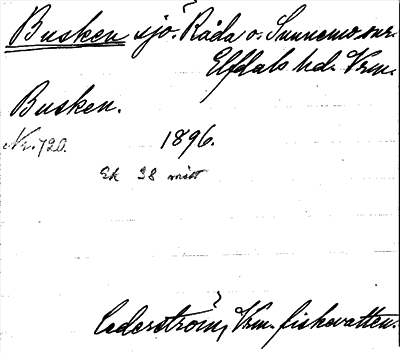 Busken sjö. Råda o. Sunnemo snr.
Elfdals hd. Vrm.
Busken.
Nr. 720. 1896.
Ek 38 mitt
Cederström, Vrm. fiskevatten.